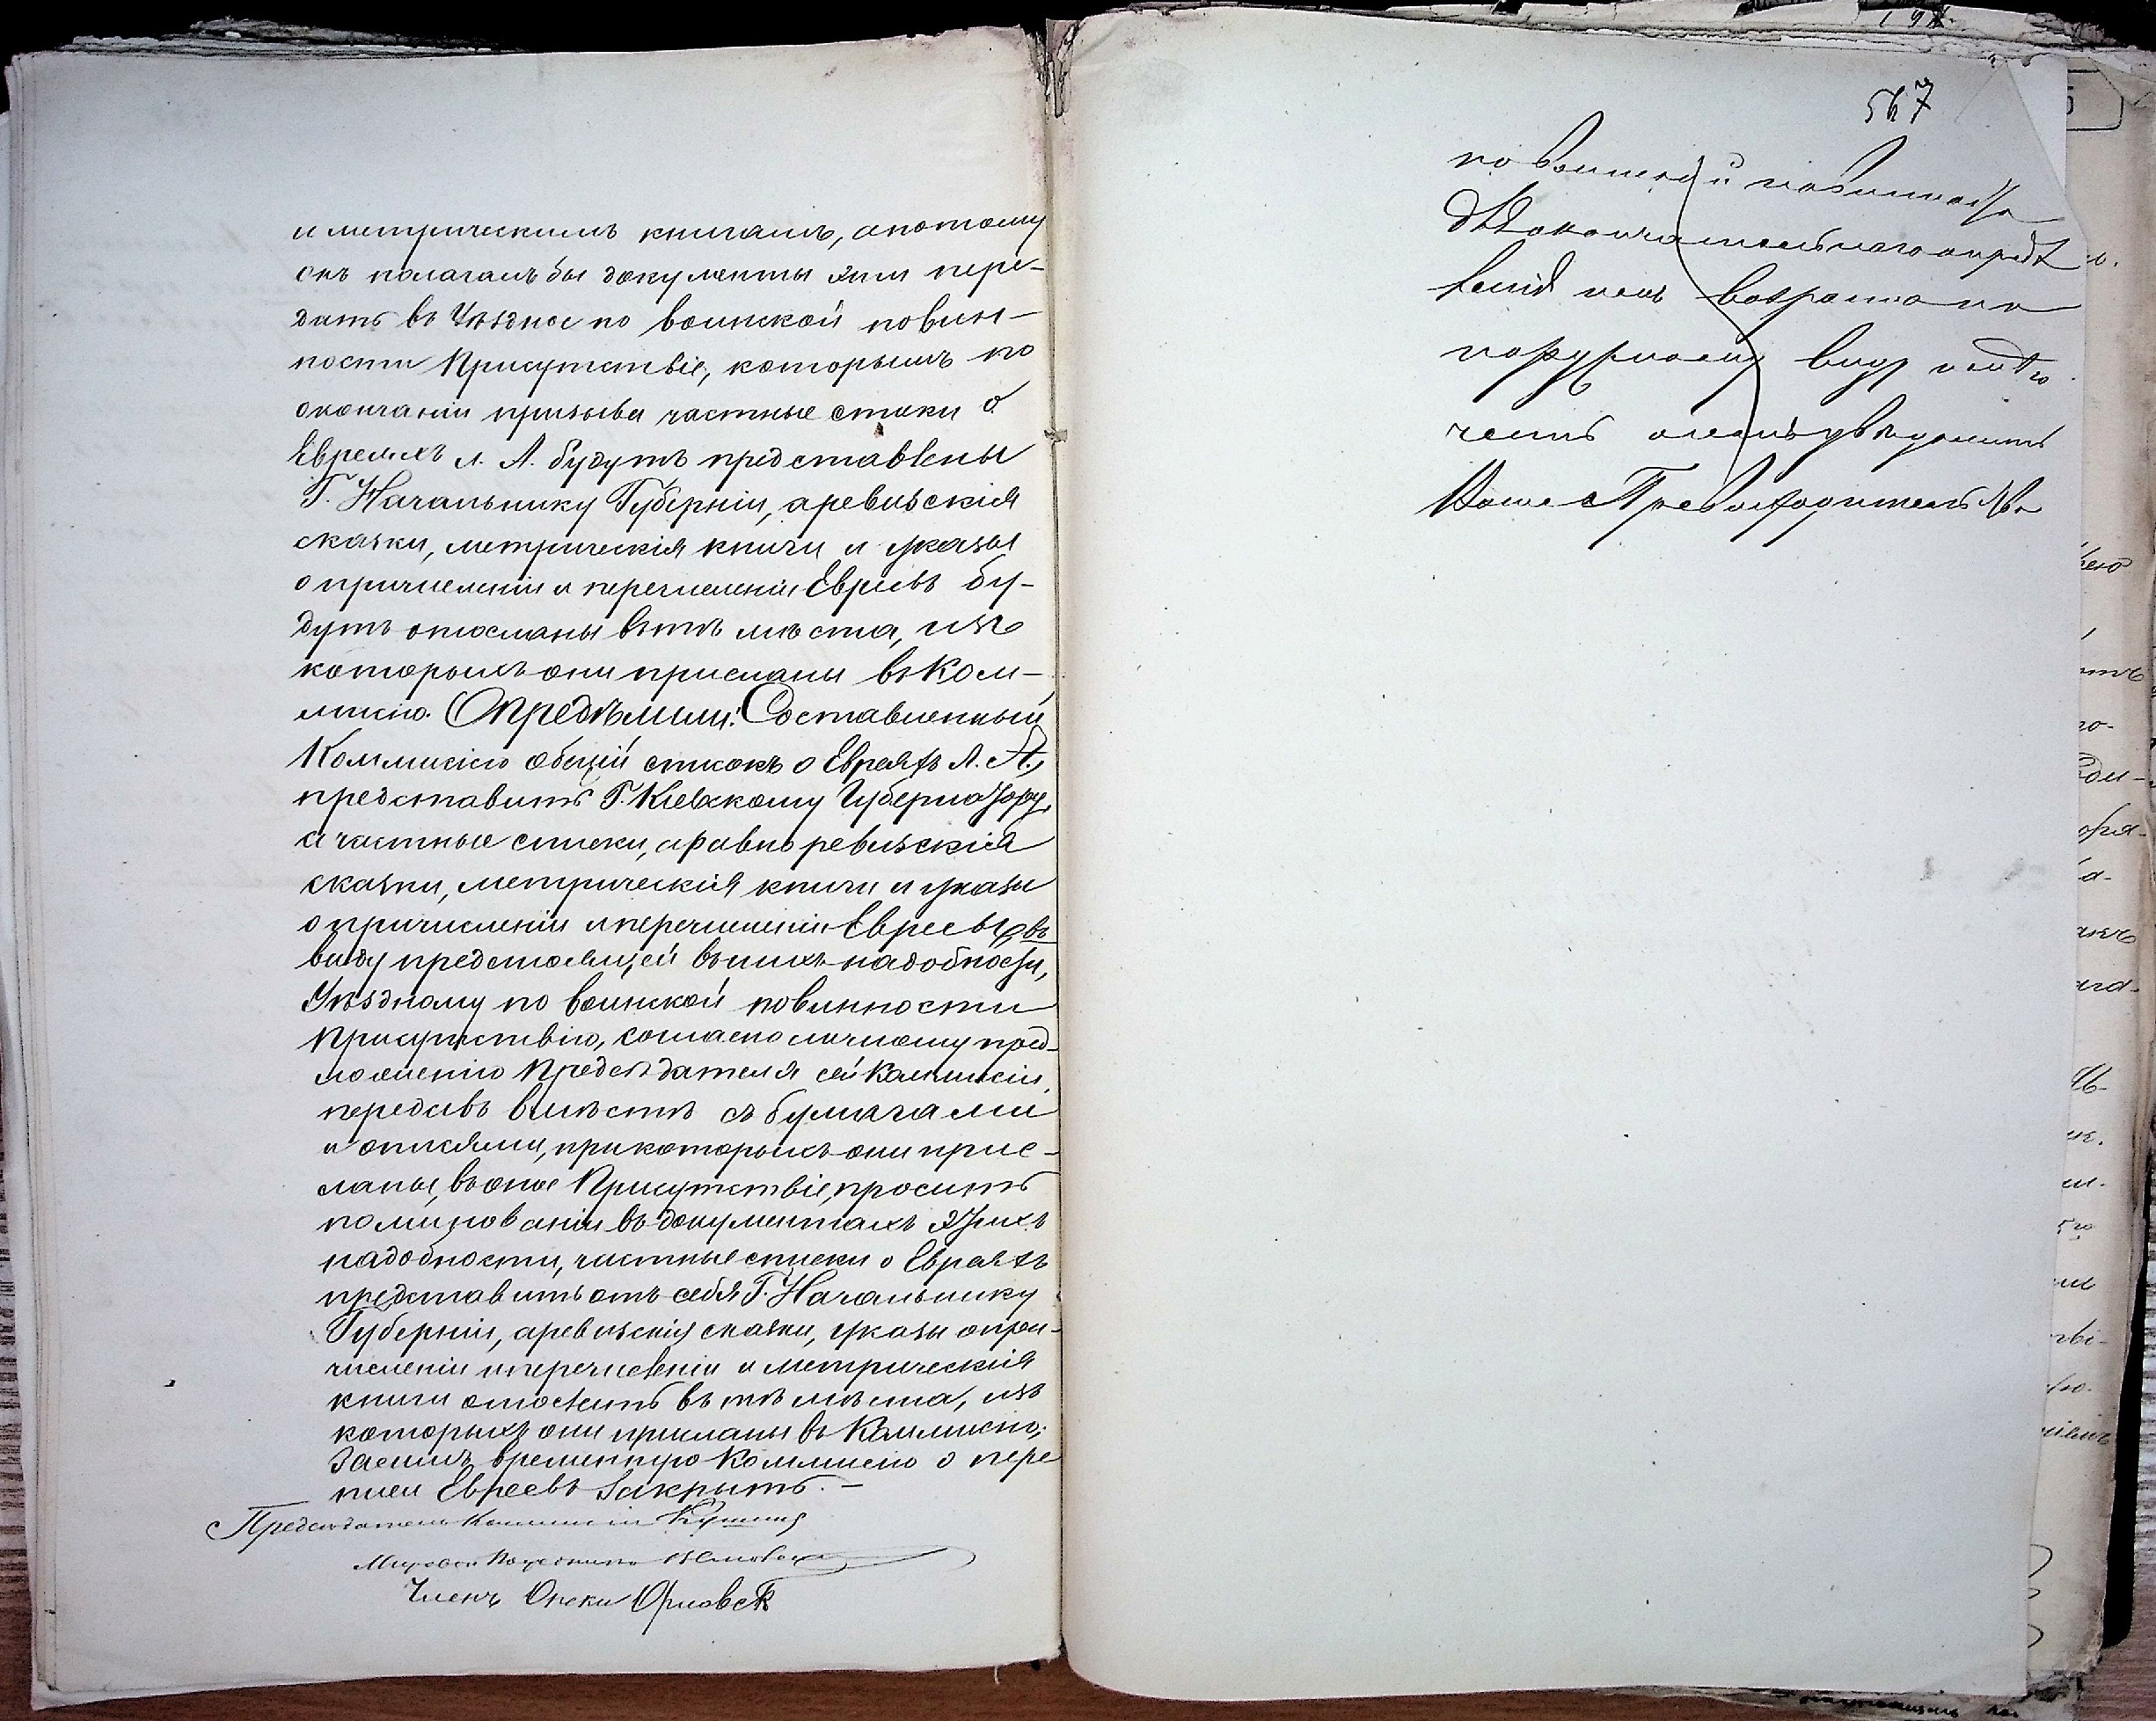 и метрическимъ книгамъ, а потому
онъ полагалъ бы документы эти пере-
дать въ Уѣздное по воинской повин-
ности Присутствіе, которымъ по
окончаніи призыва частные списки о
Евреяхъ л. А. будутъ представлены
Г. Начальнику Губерніи, а ревизскія
сказки, метрическія книги и указы
о причисленіи и перечисленіи Евреевъ бу-
дутъ отосланы въ тѣ мѣста, изъ
которыхъ они присланы въ Ком-
мисію. Опредѣлили: Составленный
Коммисіею общій списокъ о Евреяхъ л. А.,
представить Г. Кіевскому Губернатору,
а частные списки, а равно ревизскія
сказки, метрическія книги и указы
о причисленіи и перечисленіи Евреевъ, въ
виду предстоящей въ нихъ надобности,
Уѣздному по воинской повинности
Присутствію, согласно личному пред-
ложенію Предсѣдателя сей Коммисіи,
передавъ вмѣстѣ съ бумагами
и описями, при которыхъ они прис-
ланы, въ оное Присутствіе, просить
по минованіи въ документахъ этихъ
надобности, частные списки о Евреяхъ
представить отъ себя Г. Начальнику
Губерніи, а ревизскія сказки, указы о при-
численіи и перечисленіи и метрическія
книги отослать въ тѣ мѣста, изъ
которыхъ они присланы въ Коммисію;
засимъ временную Коммисію о пере
писи Евреевъ закрыть. —
Предсѣдатель Коммисіи
Мировой Посредникъ
Членъ Опеки Орловск
567
по воинской повинности
для окончательнаго опредѣ
ленія ихъ возраста по
наружному виду и
чемъ имѣю увѣдомить
Ваше Превосходительство